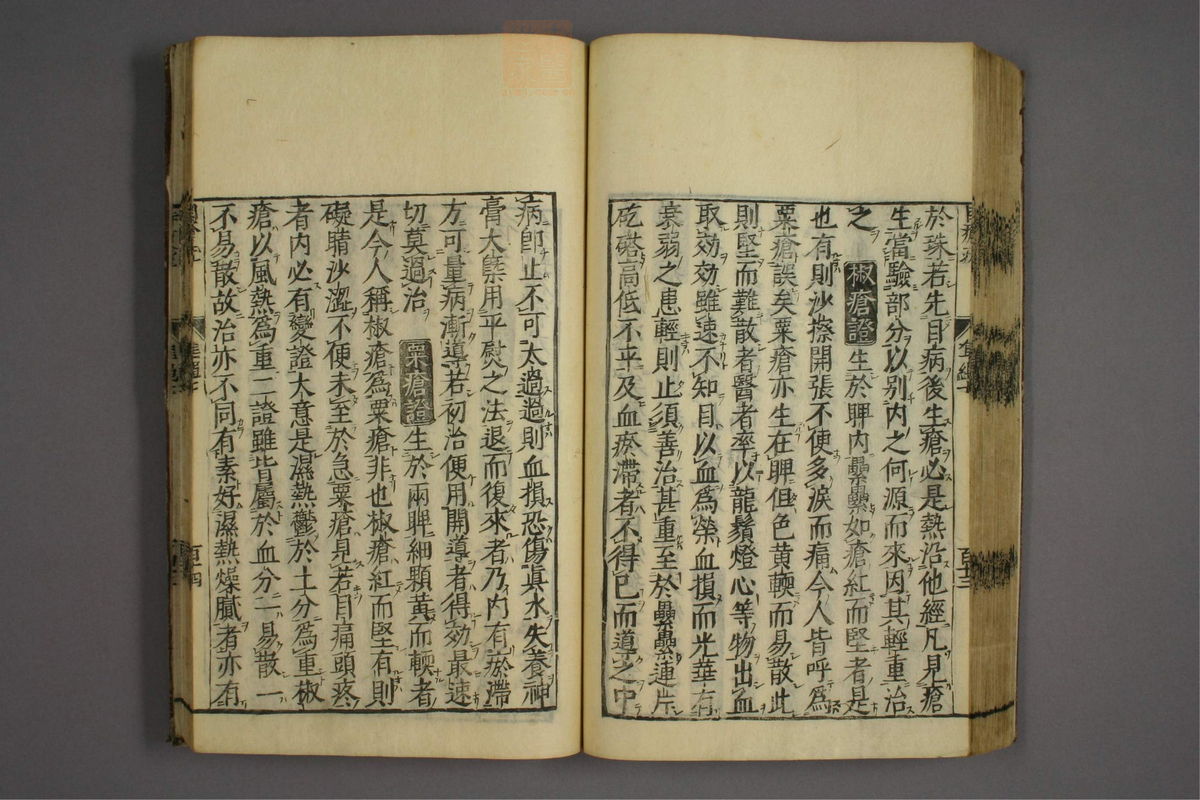 於珠若先目病後生瘡必是熱沿他經凡見瘡
生當驗部分以別內之何源而來因其輕重治
之 椒瘡證 生於睥內纍纍如瘡紅而堅者是
也有則沙擦開張不便多淚而痛今人皆呼爲
粟瘡誤矣粟瘡亦生在睥但色黄軟而易散此
則堅而難散者醫者率以龍鬚燈心等物出血
取効効雖速不知目以血爲榮血損而光華有
衰弱之患輕則止須善治甚重至於纍纍連片
疙瘩高低不平及血瘀滯者不得已而導之中
病卽止不可太過過則血損恐傷眞水失養神
膏大槩用平熨之法退而復來者乃內有瘀滯
方可量病漸導若初治便用開導者得効最速
切莫過治 粟瘡證 生於兩睥細顆黄而軟者
是今人稱椒瘡爲粟瘡非也椒瘡紅而堅有則
礙睛沙澀不便未至於急粟瘡見若目痛頭疼
者內必有變證大意是濕熱鬱於土分爲重椒
瘡以風熱爲重二證雖皆屬於血分一易散一
不易散故治亦不同有素好濕熱燥膩者亦有